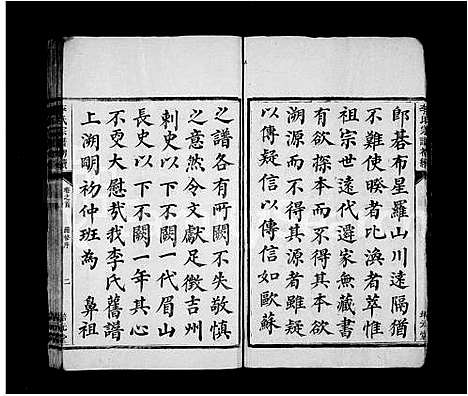 郎碁布星羅山川遠隔猶
不難使暌者比渙者萃惟
祖宗世遠代遷家無藏書
有欲探本而不得其本雖
溯源而不得其源者雖疑
以傳疑信以傳信如歐蘇
之譜各有所闕不失敬慎
之意然令文獻足徵吉州
刺史以下不闕一代眉山
長史以下不闕一年其心
不更大慰哉我李氏舊譜
上溯明初仲班為鼻祖
卷之首
二